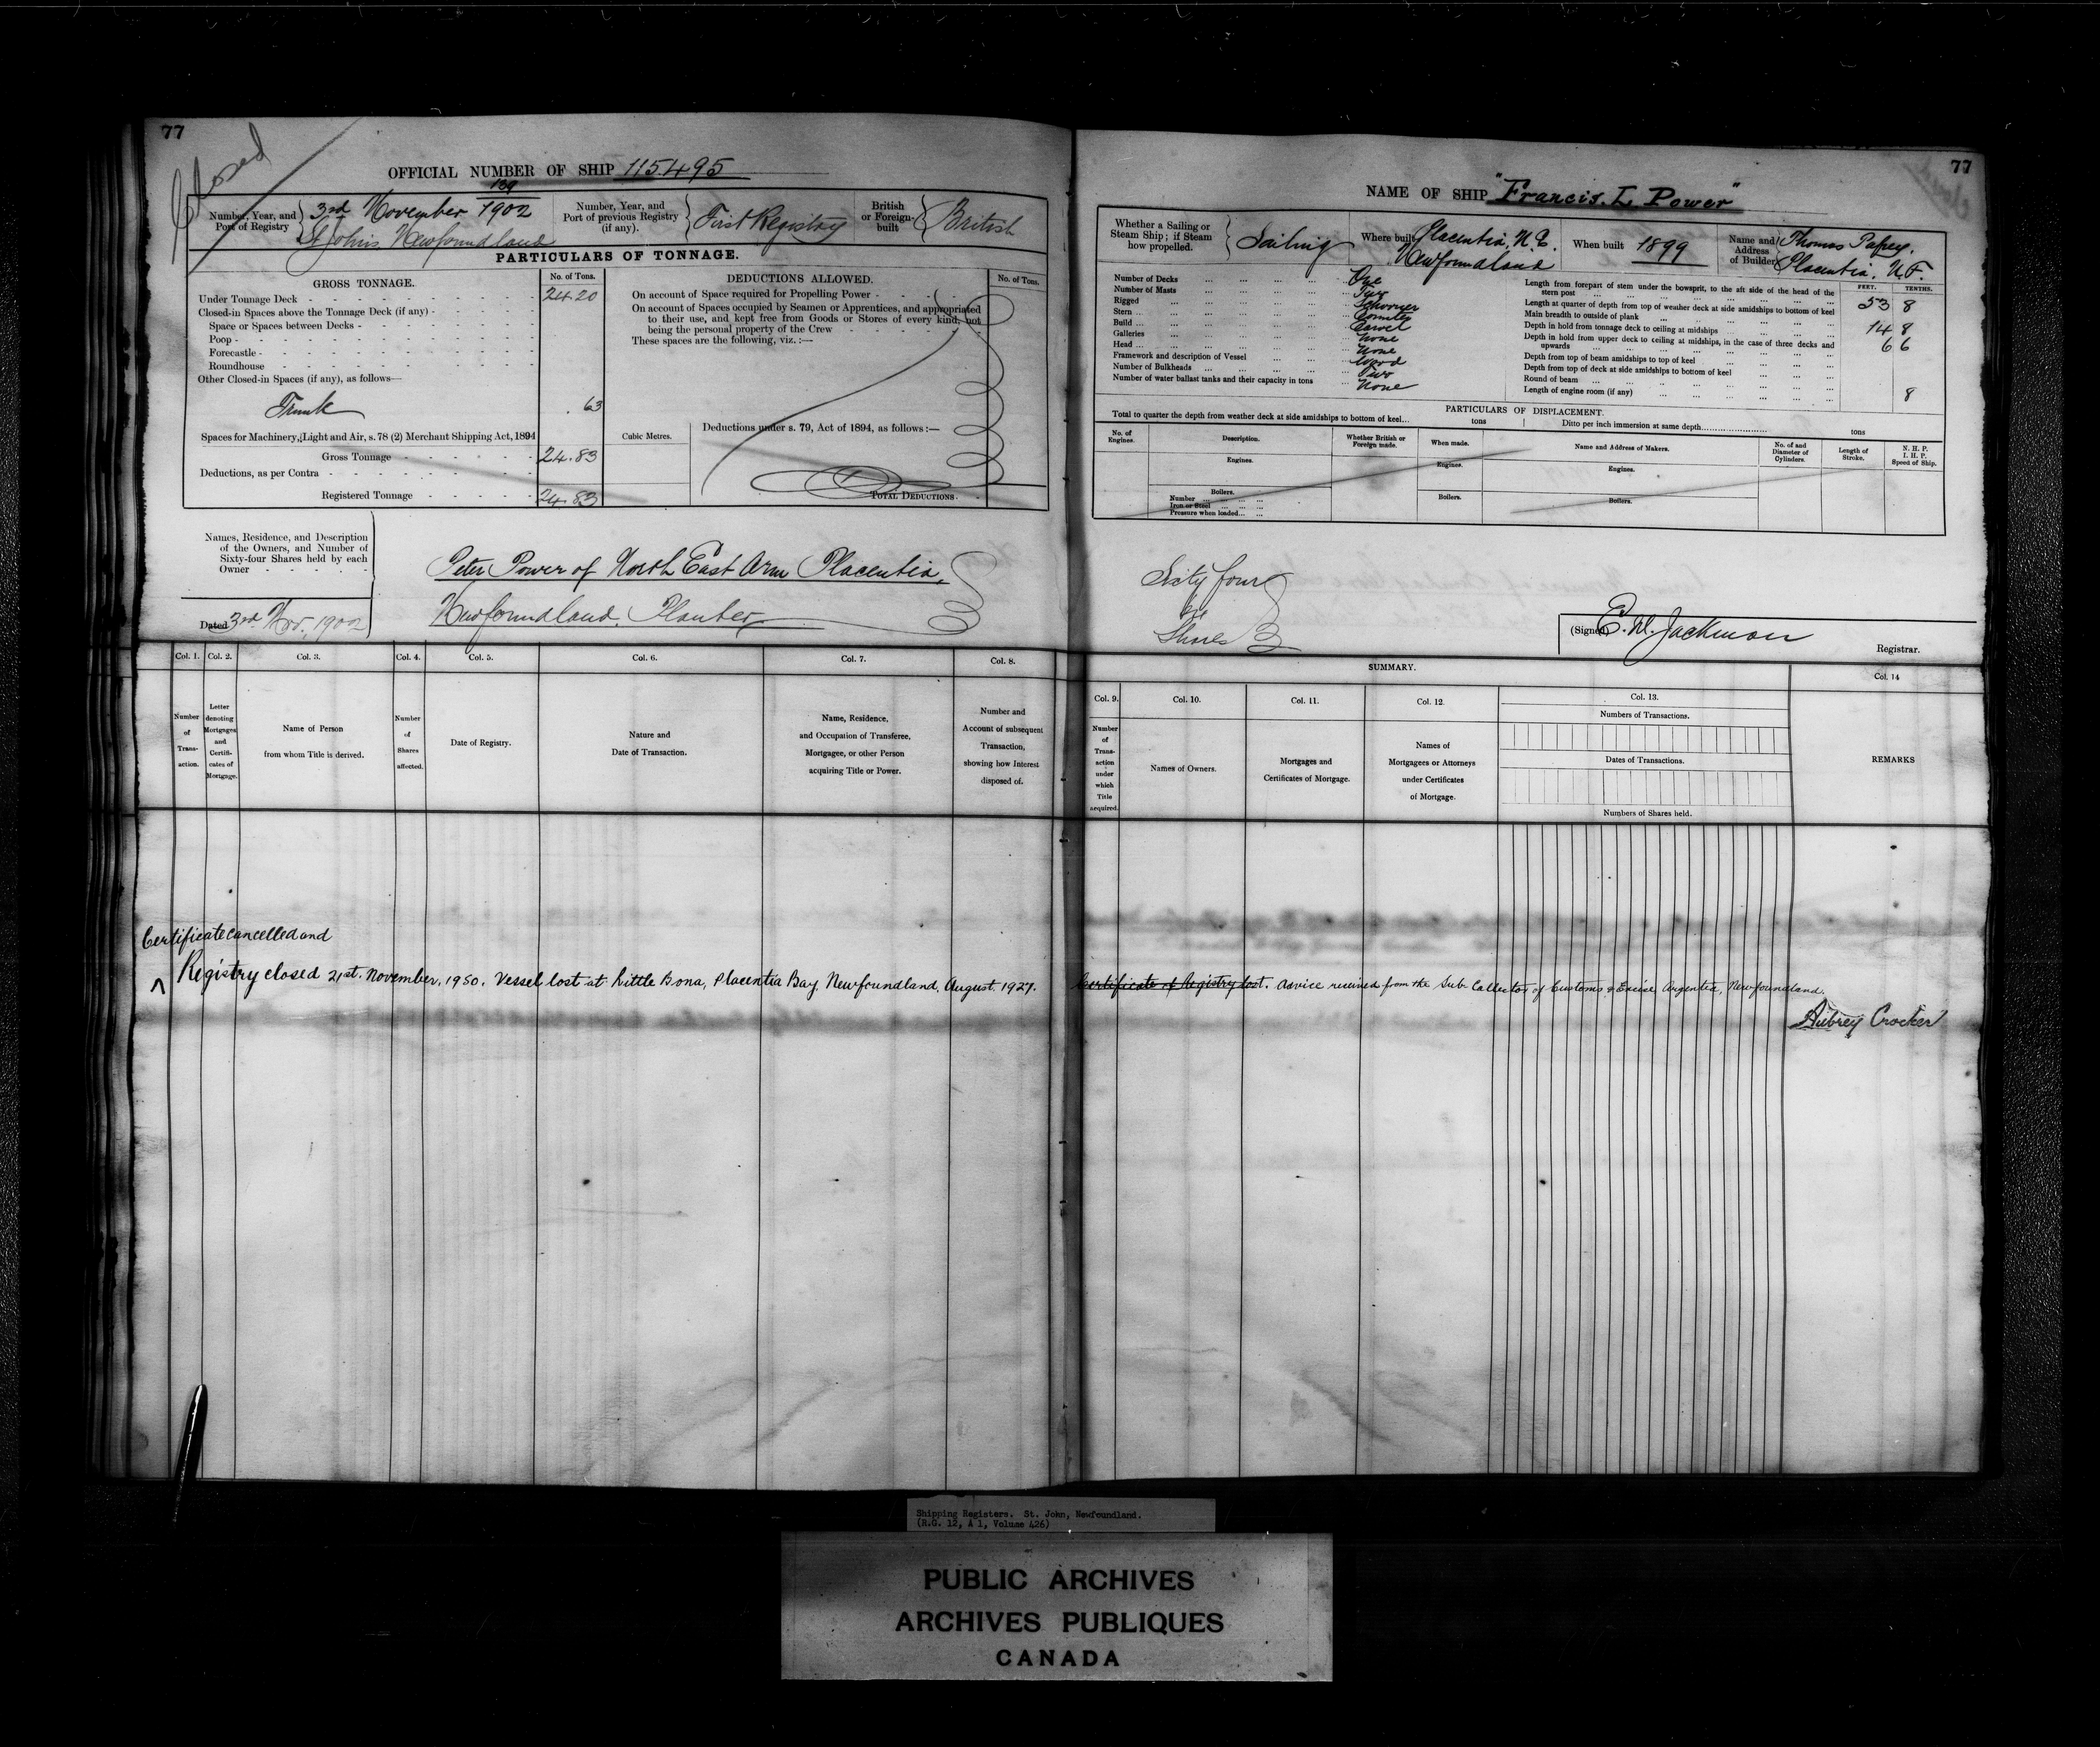 77
Closed
OFFICIAL NUMBER OF SHIP 115.495
Number, Year, and Port of Registry
139
3rd November 1902
St Johns Newfoundland
Number, Year, and Port of previous Registry (if any).
First Registry
British or Foreign-built
British
PARTICULARS OF TONNAGE.
GROSS TONNAGE.
No. of Tons.
Under Tonnage Deck 24.20
Closed-in Spaces above the Tonnage Deck (if any)
Space or Spaces between Decks
Poop
Forecastle
Roundhouse
Other Closed-in Spaces (if any), as follows—
Trunk .63
Spaces for Machinery, Light and Air, s. 78 (2) Merchant Shipping Act, 1894
Cubic Metres.
Gross Tonnage 24.83
Deductions, as per Contra
Registered Tonnage 24.83
DEDUCTIONS ALLOWED.
No. of Tons.
On account of Space required for Propelling Power
On account of Spaces occupied by Seamen or Apprentices, and appropriated
to their use, and kept free from Goods or Stores of every kind, not
being the personal property of the Crew
These spaces are the following, viz. :—
Deductions under s. 79, Act of 1894, as follows :—
TOTAL DEDUCTIONS
Names, Residence, and Description
of the Owners, and Number of
Sixty-four Shares held by each
Owner
Dated 3rd Nov. 1902
Peter Power of North East Arm Placentia,
Newfoundland. Planter
Col. 1. Col. 2. Col. 3. Col. 4. Col. 5. Col. 6. Col. 7. Col. 8.
Number of Transaction.
Letter denoting Mortgages and Certificates of Mortgage.
Name of Person from whom Title is derived.
Number of Shares affected.
Date of Registry.
Nature and Date of Transaction.
Name, Residence, and Occupation of Transferee, Mortgagee, or other Person acquiring Title or Power.
Number and Account of subsequent Transaction, showing how Interest disposed of.
Certificate cancelled and
Registry closed 21st. November, 1950. Vessel lost at Little Bona, Placentia Bay, Newfoundland, August 1927.
77
NAME OF SHIP "Francis. L Power"
Whether a Sailing or Steam Ship ; if Steam how propelled.
Sailing
Where built
Placentia, N.E.
Newfoundland
When built 1899
Name and Address of Builder
Thomas
Placentia, N.F.
Number of Decks One
Number of Masts Two
Rigged Schooner
Stern Counter
Build Carvel
Galleries None
Head None
Framework and description of Vessel Wood
Number of Bulkheads Two
Number of water ballast tanks and their capacity in tons None
FEET. TENTHS.
Length from forepart of stem under the bowsprit, to the aft side of the head of the
stern post 53 8
Length at quarter of depth from top of weather deck at side amidships to bottom of keel
Main breadth to outside of plank 14 8
Depth in hold from tonnage deck to ceiling at midships 6 6
Depth in hold from upper deck to ceiling at midships, in the case of three decks and
upwards
Depth from top of beam amidships to top of keel
Depth from top of deck at side amidships to bottom of keel
Round of beam 8
Length of engine room (if any)
PARTICULARS OF DISPLACEMENT.
Total to quarter the depth from weather deck at side amidships to bottom of keel... tons
Ditto per inch immersion at same depth tons
No. of Engines.
Description.
Whether British or Foreign made.
When made.
Name and Address of Makers.
No. of and Diameter of Cylinders.
Length of Stroke.
N. H. P. I. H. P. Speed of Ship.
Engines. Engines. Engines.
Boilers. Boilers. Boilers.
Number
Iron or Steel
Pressure when loaded
Sixty four
Shares
(Signed) Jackman
Registrar.
SUMMARY.
Col. 9. Col. 10. Col. 11. Col. 12. Col. 13. Col. 14
Number of Transaction under which Title acquired.
Names of Owners.
Mortgages and Certificates of Mortgage.
Names of Mortgagees or Attorneys under Certificates of Mortgage.
Numbers of Transactions.
Dates of Transactions.
Numbers of Shares held.
REMARKS
Certificate of Registry lost. Advice received from the Sub Collector of Customs & Excise, Argentia, Newfoundland.
Aubrey Crocker
Shipping Registers. St. John, Newfoundland.
(R.G. 12, A 1, Volume 426)
PUBLIC ARCHIVES
ARCHIVES PUBLIQUES
CANADA